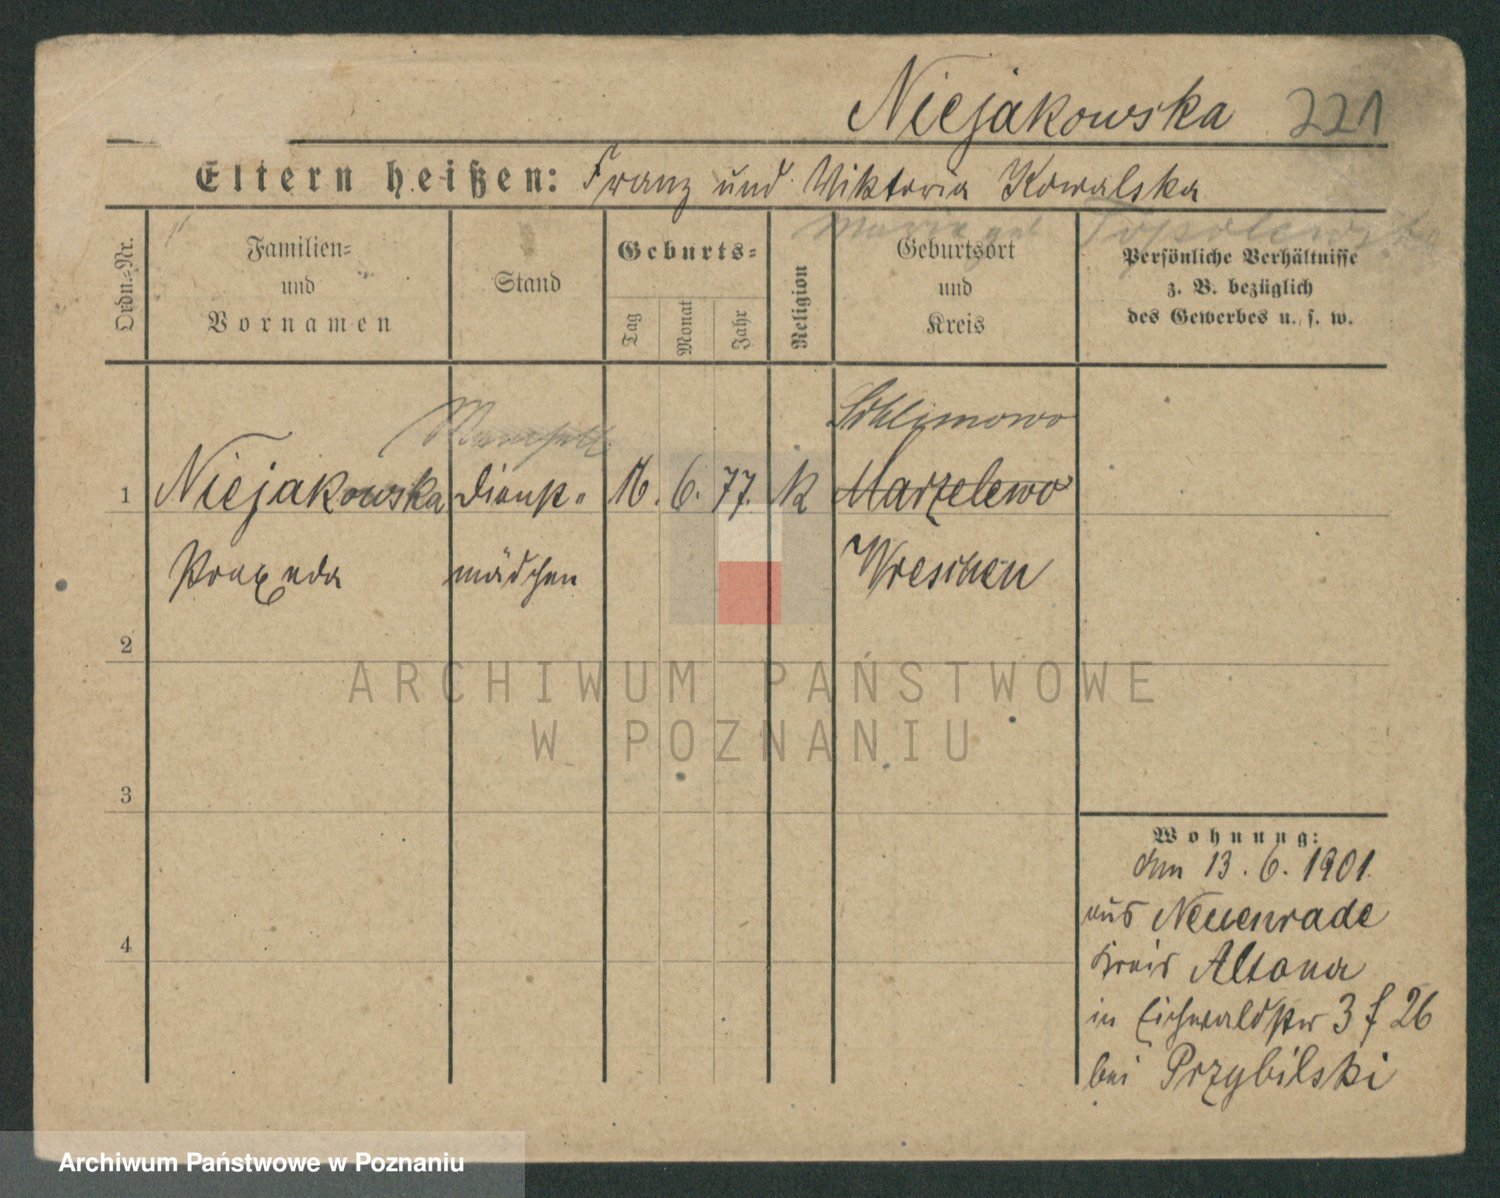 Niejakowska 221
Eltern heißen: Franz und Viktoria Kowalska
Marie geb. Topolewska
Ordn.-Nr.
Familien-
und
Vornamen
Stand
Geburts-
Tag
Monat
Jahr
Religion
Geburtsort
und
Kreis
Persönliche Verhältnisse
z. B. bezüglich
des Gewerbes u. s. w.
Mamsell
1 Niejakowska Dienst- 16. 6. 77. K Marzelewo
Praxeda mädchen Wreschen
2
3
4
Wohnung:
Am 13. 6. 1901.
aus Neuenrade
Kreis Altona
in Eichwaldstr 3 f 26
bei Przybilski
ARCHIWUM PAŃSTWOWE
W POZNANIU
Archiwum Państwowe w Poznaniu